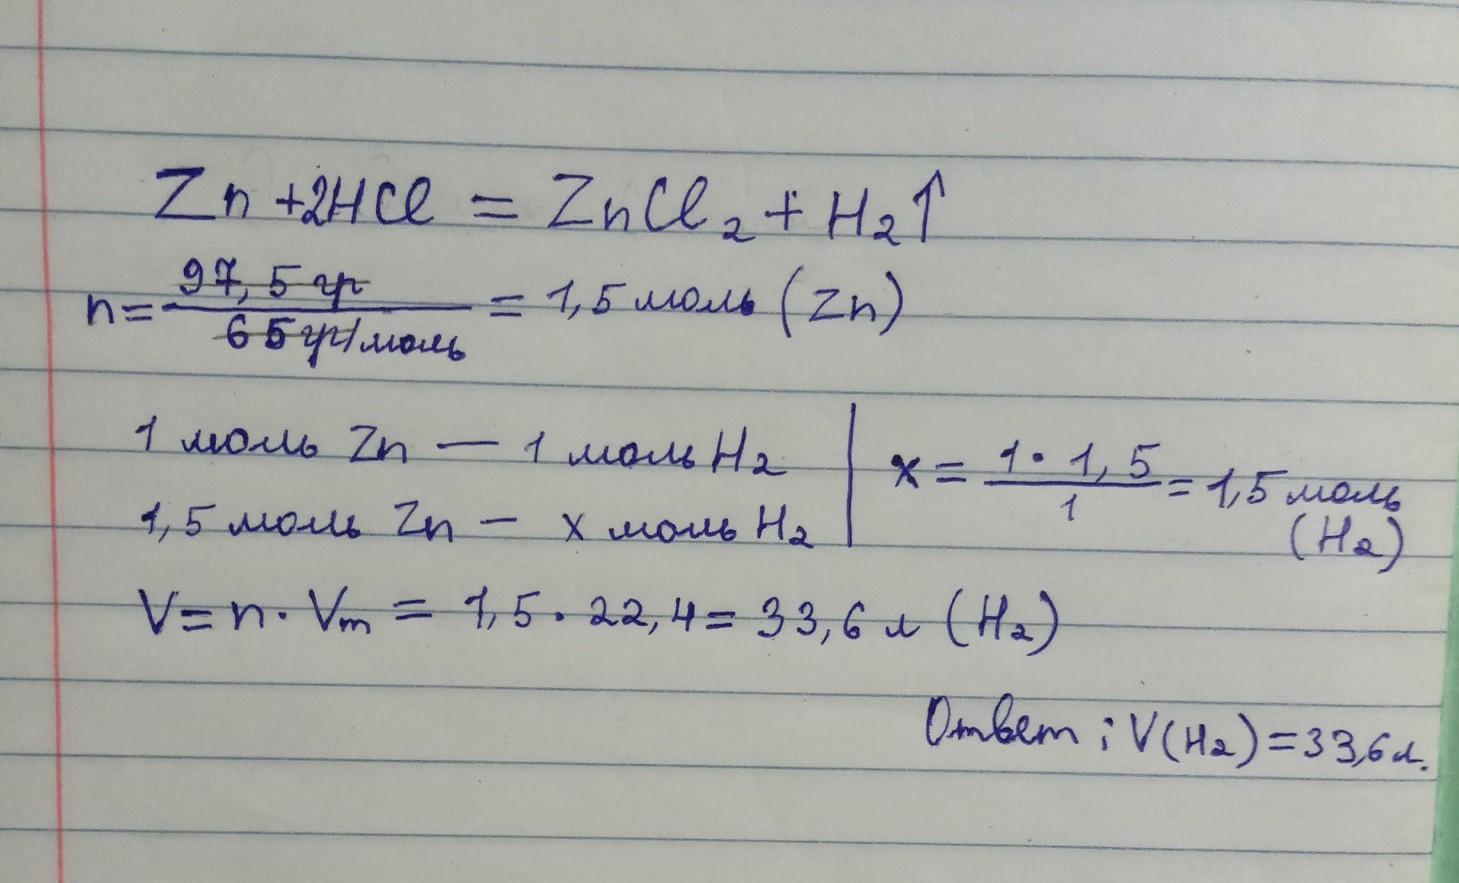 Zn + 2HCl = ZnCl₂ + H₂↑
n = 97,5 гр / 65 гр/моль = 1,5 моль (Zn)
1 моль Zn — 1 моль H₂ | x = 1 · 1,5 / 1 = 1,5 моль (H₂)
1,5 моль Zn — x моль H₂
V = n · Vm = 1,5 · 22,4 = 33,6 л (H₂)
Ответ : V(H₂) = 33,6 л.